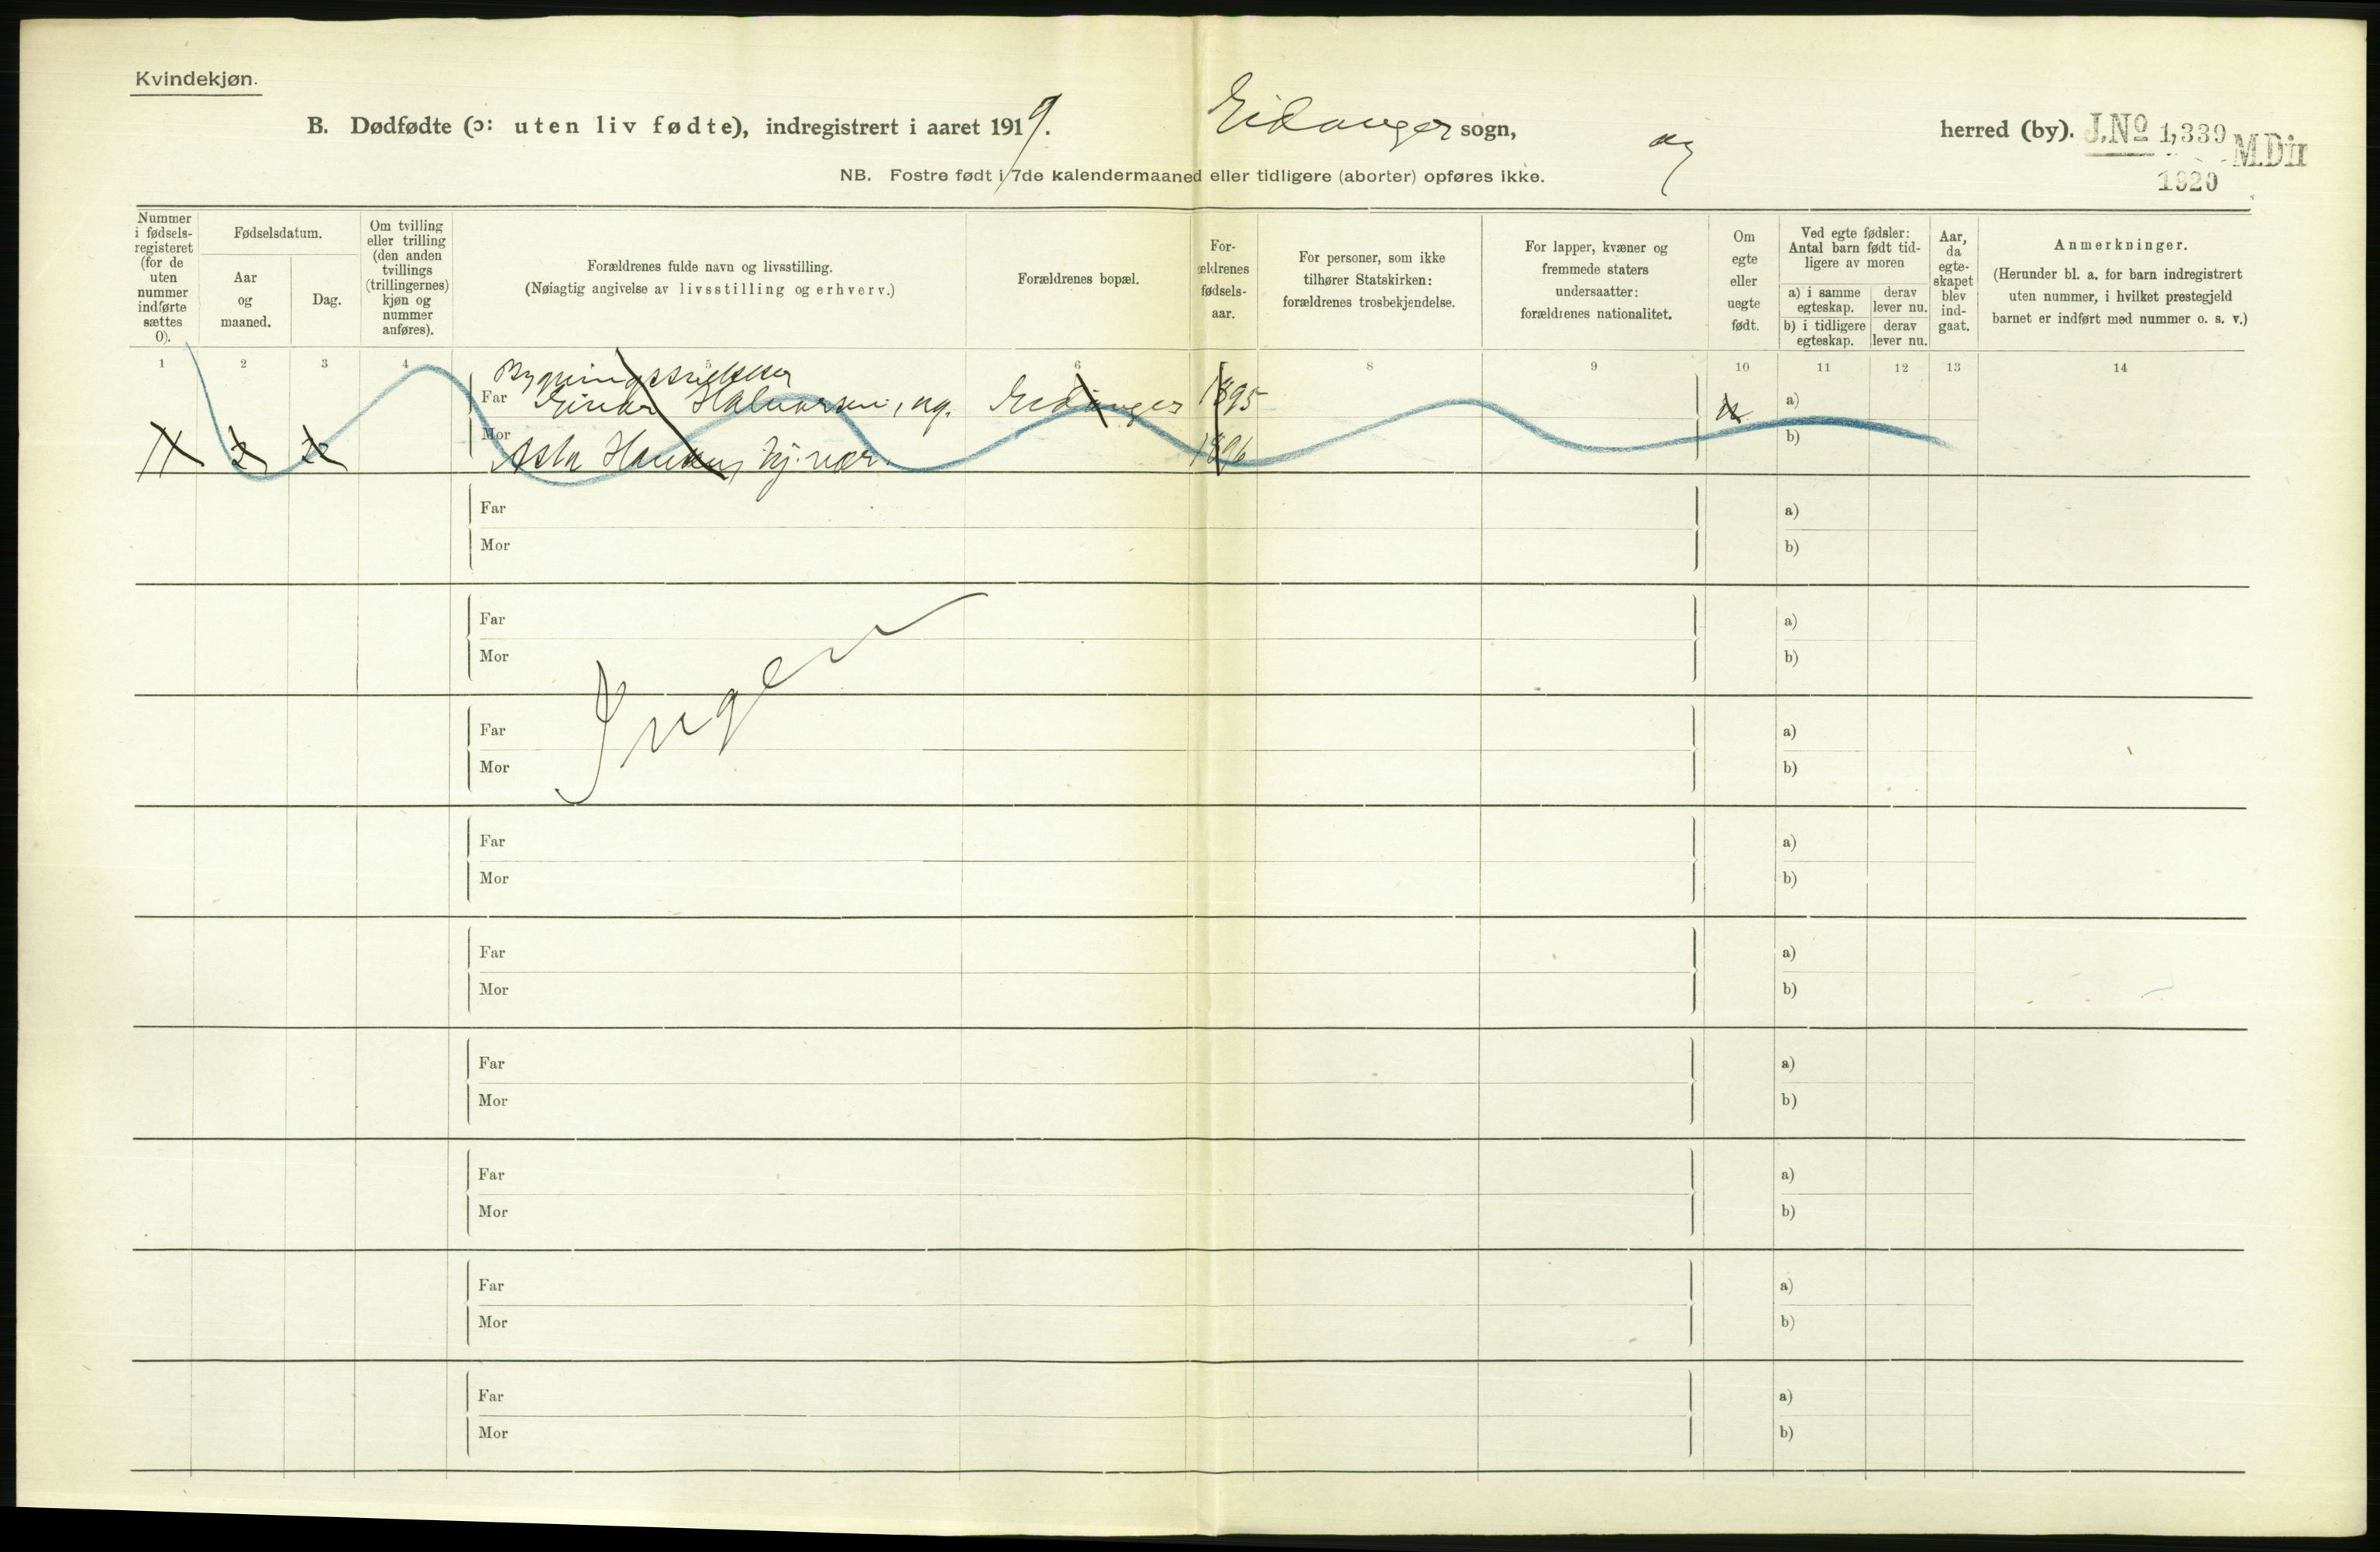 Kvindekjøn.
B. Dødfødte (ɔ: uten liv fødte), indregistrert i aaret 1919. Eidanger sogn, og herred (by). J.No 1,339 M.Dir
1920
NB. Fostre født i 7de kalendermaaned eller tidligere (aborter) opføres ikke.
Nummer
i fødsels-
registeret
(for de
uten
nummer
indførte
sættes
0).
Fødselsdatum.
Aar
og
maaned.
Dag.
Om tvilling
eller trilling
(den anden
tvillings
(trillingernes)
kjøn og
nummer
anføres).
Forældrenes fulde navn og livsstilling.
(Nøiagtig angivelse av livsstilling og erhverv.)
Forældrenes bopæl.
For-
ældrenes
fødsels-
aar.
For personer, som ikke
tilhører Statskirken:
forældrenes trosbekjendelse.
For lapper, kvæner og
fremmede staters
undersaatter:
forældrenes nationalitet.
Om
egte
eller
uegte
født.
Ved egte fødsler:
Antal barn født tid-
ligere av moren
a) i samme
egteskap.
derav
lever nu.
b) i tidligere
egteskap.
derav
lever nu.
Aar,
da
egte-
skapet
blev
ind-
gaat.
Anmerkninger.
(Herunder bl. a. for barn indregistrert
uten nummer, i hvilket prestegjeld
barnet er indført med nummer o. s. v.)
1 2 3 4 5 6 8 9 10 11 12 13 14
Far Einar Halvorsen, ug. Eidanger 1895 u a)
Mor Asta Hansen, hj. vær. 1896 b)
Far a)
Mor b)
Far a)
Mor b)
Ingen
Far a)
Mor b)
Far a)
Mor b)
Far a)
Mor b)
Far a)
Mor b)
Far a)
Mor b)
Far a)
Mor b)
Far a)
Mor b)